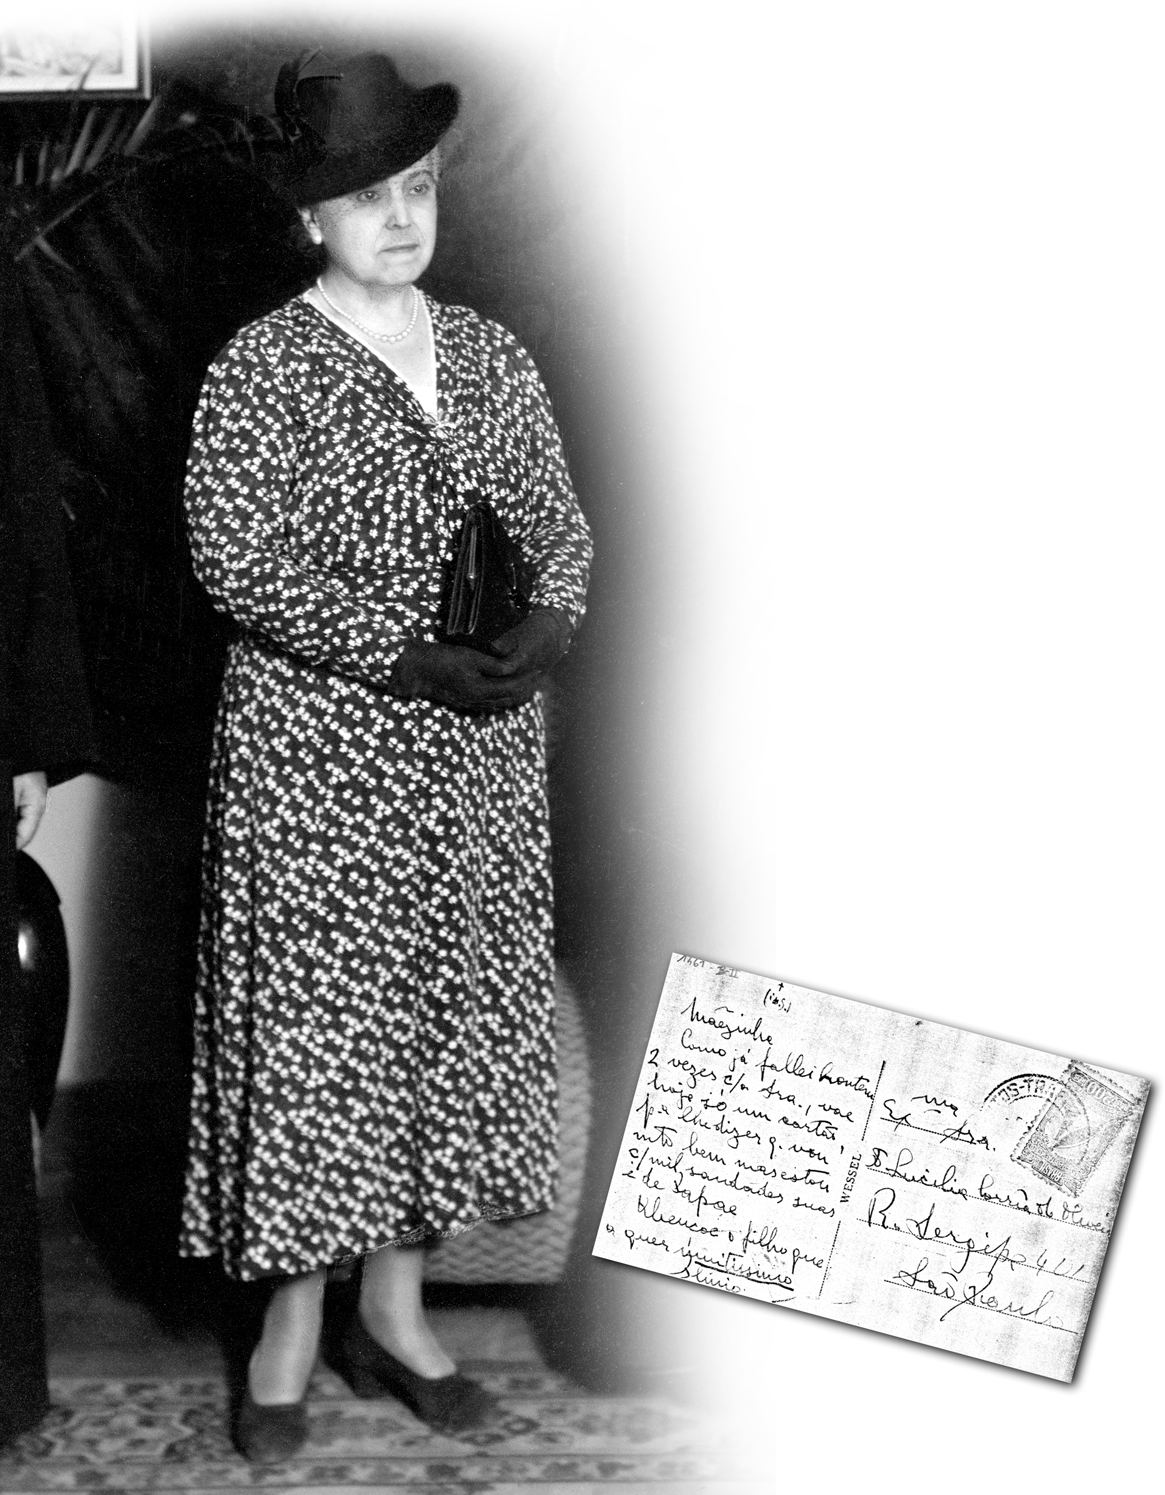 1461-B-II
(ins)
Mãezinha
Como já fallei hontem
2 vezes c/a Sra., vae
hoje só um cartão,
pa lhe dizer q. vou
mto bem mas estou
c/mil saudades suas
e de Papae
Abençoe o filho que
a quer muitissimo
Plinio.
WESSEL
Exma Sra.
D. Lucilia Corrêa de Oliveira
R. Sergipe 401
São Paulo